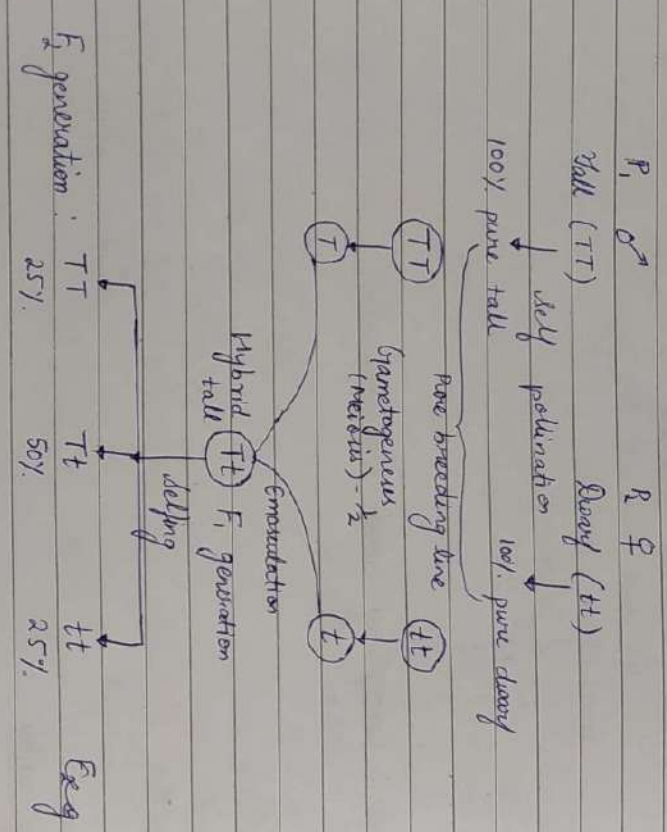 P₁ ♂ P₂ ♀
Tall (TT) Dwarf (tt)
self pollination
100% pure tall 100% pure dwarf
Pure breeding line
TT tt
Gametogenesis
(Meiosis) - ½
T t
Emasculation
Tt F₁ generation
Hybrid
tall
Selfing
F₂ generation : TT Tt tt
25% 50% 25%